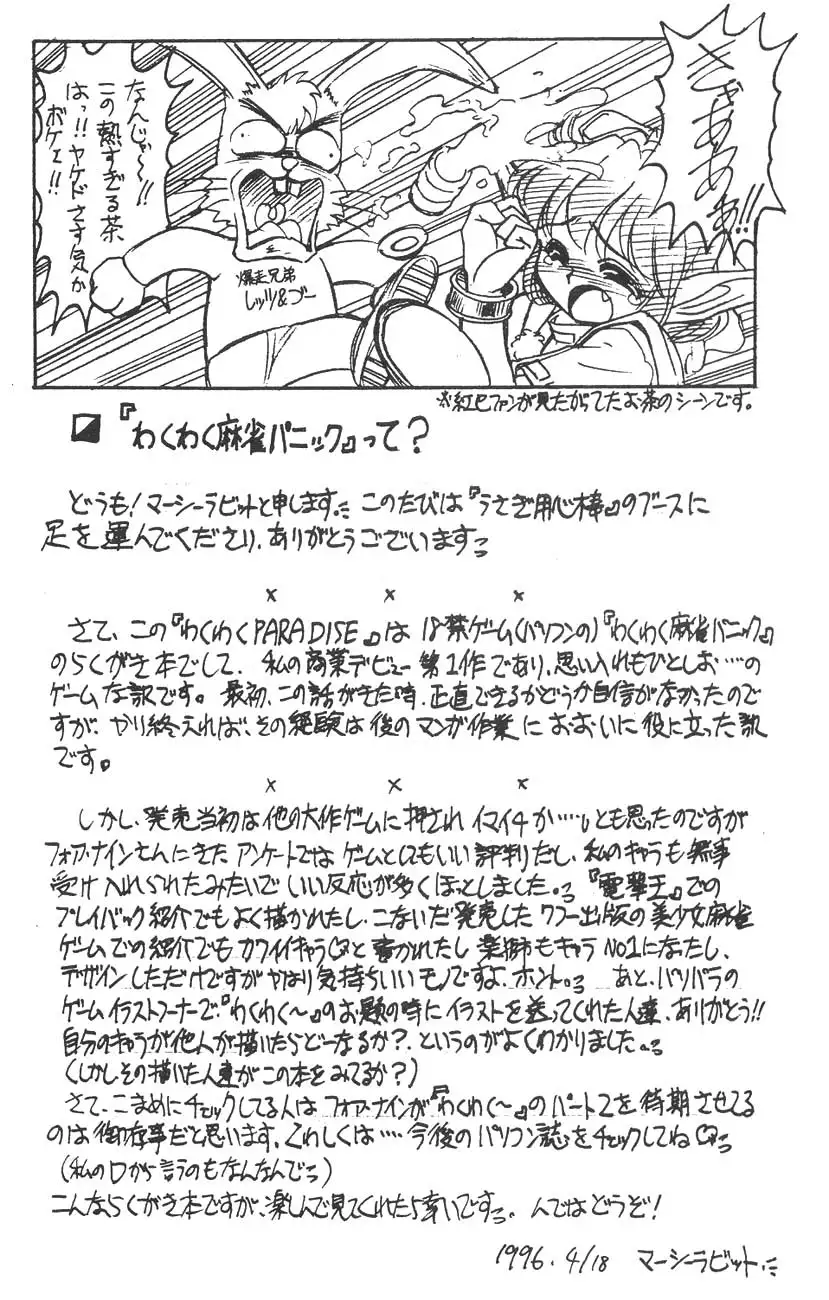 きゃあああぁ!!
なんじゃ〜!!
この熱すぎる茶
はっ!!ヤケドさす気か
ボケェ!!
爆走兄弟
レッツ&ゴー
※紅巳ファンが見たがってたお茶のシーンです。
『わくわく麻雀パニック』って?
どうも!マーシーラビットと申します。このたびは『うさぎ用心棒』のブースに
足を運んでくださり、ありがとうございます
× × ×
さて、この『わくわくPARADISE』は18禁ゲーム(パソコンの)『わくわく麻雀パニック』
のらくがき本でして、私の商業デビュー第1作であり、思い入れもひとしお…の
ゲームな訳です。最初、この話がきた時、正直できるかどうか自信がなかったので
すが、やり終えれば、その経験は後のマンガ作業におおいに役に立った訳
です。
× × ×
しかし、発売当初は他の大作ゲームに押されイマイチか……とも思ったのですが
フォア・ナインさんにきたアンケートではゲームとしてもいい評判だし、私のキャラも無事
受け入れられたみたいでいい反応が多くほっとしました。『電撃王』での
プレイバック紹介でもよく描かれたし、こないだ発売したワニー出版の美少女麻雀
ゲームでの紹介でもカワイイキャラ♡と書かれたし 薬師もキャラNO1になったし、
デザインしただけですがやはり気持ちいいモノですよ、ホント。 あと、パソパラの
ゲームイラストコーナーで『わくわく〜』のお題の時にイラストを送ってくれた人達、ありがとう!!
自分のキャラが他人が描いたらどーなるか?というのがよくわかりました
(しかしその描いた人達がこの本をみてるか?)
さて、こまめにチェックしてる人はフォア・ナインが『わくわく〜』のパート2を待期させてる
のは御存事だと思います。くわしくは…今後のパソコン誌をチェックしてね♡
(私の口から言うのもなんなんで)
こんならくがき本ですが、楽しんで見てくれたら幸いです。んではどうぞ!
1996.4/18 マーシーラビット